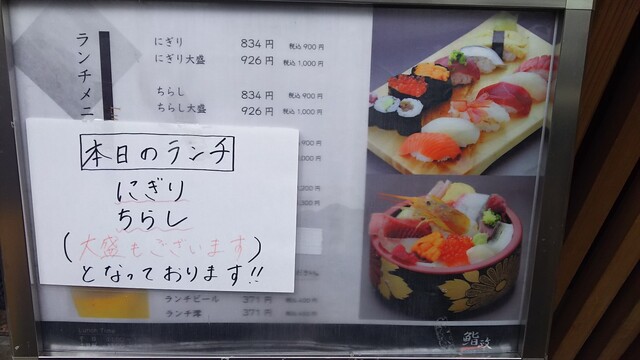 ランチメニ
にぎり 834 円 税込 900 円
にぎり大盛 926 円 税込 1,000 円
ちらし 834 円 税込 900 円
ちらし大盛 926 円 税込 1,000 円
本日のランチ
にぎり
ちらし
(大盛もございます)
となっております!!
ランチビール 371 円
ランチ澤 371 円
Lunch Time